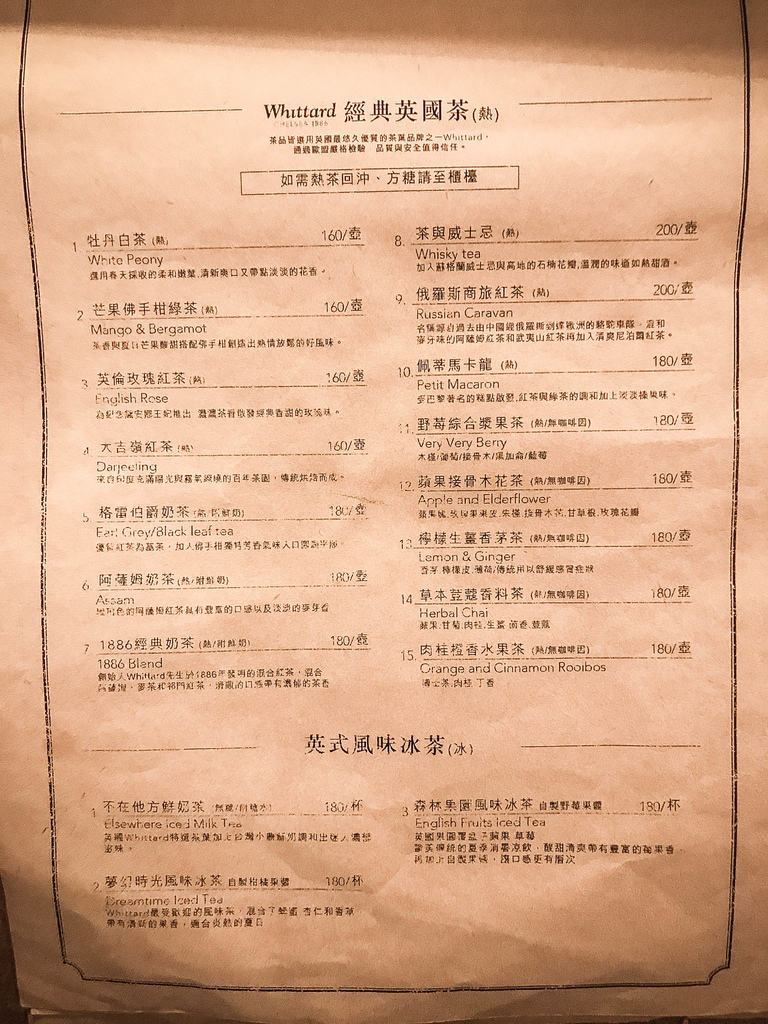 Whittard 經典英國茶(熱)
CHELSEA 1886
茶品皆選用英國最悠久優質的茶葉品牌之一Whittard,
通過歐盟嚴格檢驗 品質與安全值得信任。
如需熱茶回沖、方糖請至櫃檯
1. 牡丹白茶 (熱) 160/壺
White Peony
選用春天採收的柔和嫩葉,清新爽口又帶點淡淡的花香。
2. 芒果佛手柑綠茶 (熱) 160/壺
Mango & Bergamot
茶香與夏日芒果酸甜搭配佛手柑創造出熱情放鬆的好風味。
3. 英倫玫瑰紅茶 (熱) 160/壺
English Rose
為紀念黛安娜王妃推出 濃濃茶香散發經典香甜的玫瑰味。
4. 大吉嶺紅茶 (熱) 160/壺
Darjeeling
來自印度充滿陽光與霧氣繚繞的百年茶園,傳統烘焙而成。
5. 格雷伯爵奶茶 (熱/附鮮奶) 180/壺
Earl Grey/Black leaf tea
優質紅茶為基茶,加入佛手柑獨特芳香氣味入口
6. 阿薩姆奶茶 (熱/附鮮奶) 180/壺
Assam
的阿薩姆紅茶具有豐富的口感以及淡淡的麥芽香
7. 1886經典奶茶 (熱/附鮮奶) 180/壺
1886 Blend
創始人Whittard先生於1886年發明的混合紅茶,混合
阿薩姆、麥茶和祁門紅茶,滑順的口感帶有濃郁的茶香
8. 茶與威士忌 (熱) 200/壺
Whisky tea
加入蘇格蘭威士忌與高地的石楠花瓣,溫潤的味道如熱甜酒。
9. 俄羅斯商旅紅茶 (熱) 200/壺
Russian Caravan
名稱源自過去由中國經俄羅斯到達歐洲的駱駝車隊,混和
麥牙味的阿薩姆紅茶和武夷山紅茶再加入清爽尼泊爾紅茶。
10. 佩蒂馬卡龍 (熱) 180/壺
Petit Macaron
受巴黎著名的糕點啟發,紅茶與綠茶的調和加上淡淡榛果味。
11. 野莓綜合漿果茶 (熱/無咖啡因) 180/壺
Very Very Berry
木槿/葡萄/接骨木/黑加侖/藍莓
12. 蘋果接骨木花茶 (熱/無咖啡因) 180/壺
Apple and Elderflower
蘋果塊.玫瑰果果皮.朱槿.接骨木花.甘草根.玫瑰花瓣
13. 檸檬生薑香茅茶 (熱/無咖啡因) 180/壺
Lemon & Ginger
香茅.檸檬皮.薄荷/傳統用以舒緩感冒症狀
14. 草本荳蔻香料茶 (熱/無咖啡因) 180/壺
Herbal Chai
蘋果.甘菊.肉桂.生薑.茴香.荳蔻
15. 肉桂橙香水果茶 (熱/無咖啡因) 180/壺
Orange and Cinnamon Rooibos
博士茶.肉桂.丁香
英式風味冰茶(冰)
1. 不在他方鮮奶茶 (無糖/附糖水) 180/杯
Elsewhere Iced Milk Tea
英國Whittard特選茶葉加上台灣小農鮮奶調和出迷人濃郁
滋味。
2. 夢幻時光風味冰茶 自製柑橘果醬 180/杯
Dreamtime Iced Tea
Whittard最受歡迎的風味茶,混合了蜂蜜 杏仁和香草
帶有清新的果香,適合炎熱的夏日
3. 森林果園風味冰茶 自製野莓果醬 180/杯
English Fruits Iced Tea
英國果園覆盆子蘋果 草莓
歐美傳統的夏季消暑涼飲,酸甜清爽帶有豐富的莓果香,
再加上自製果醬,讓口感更有層次